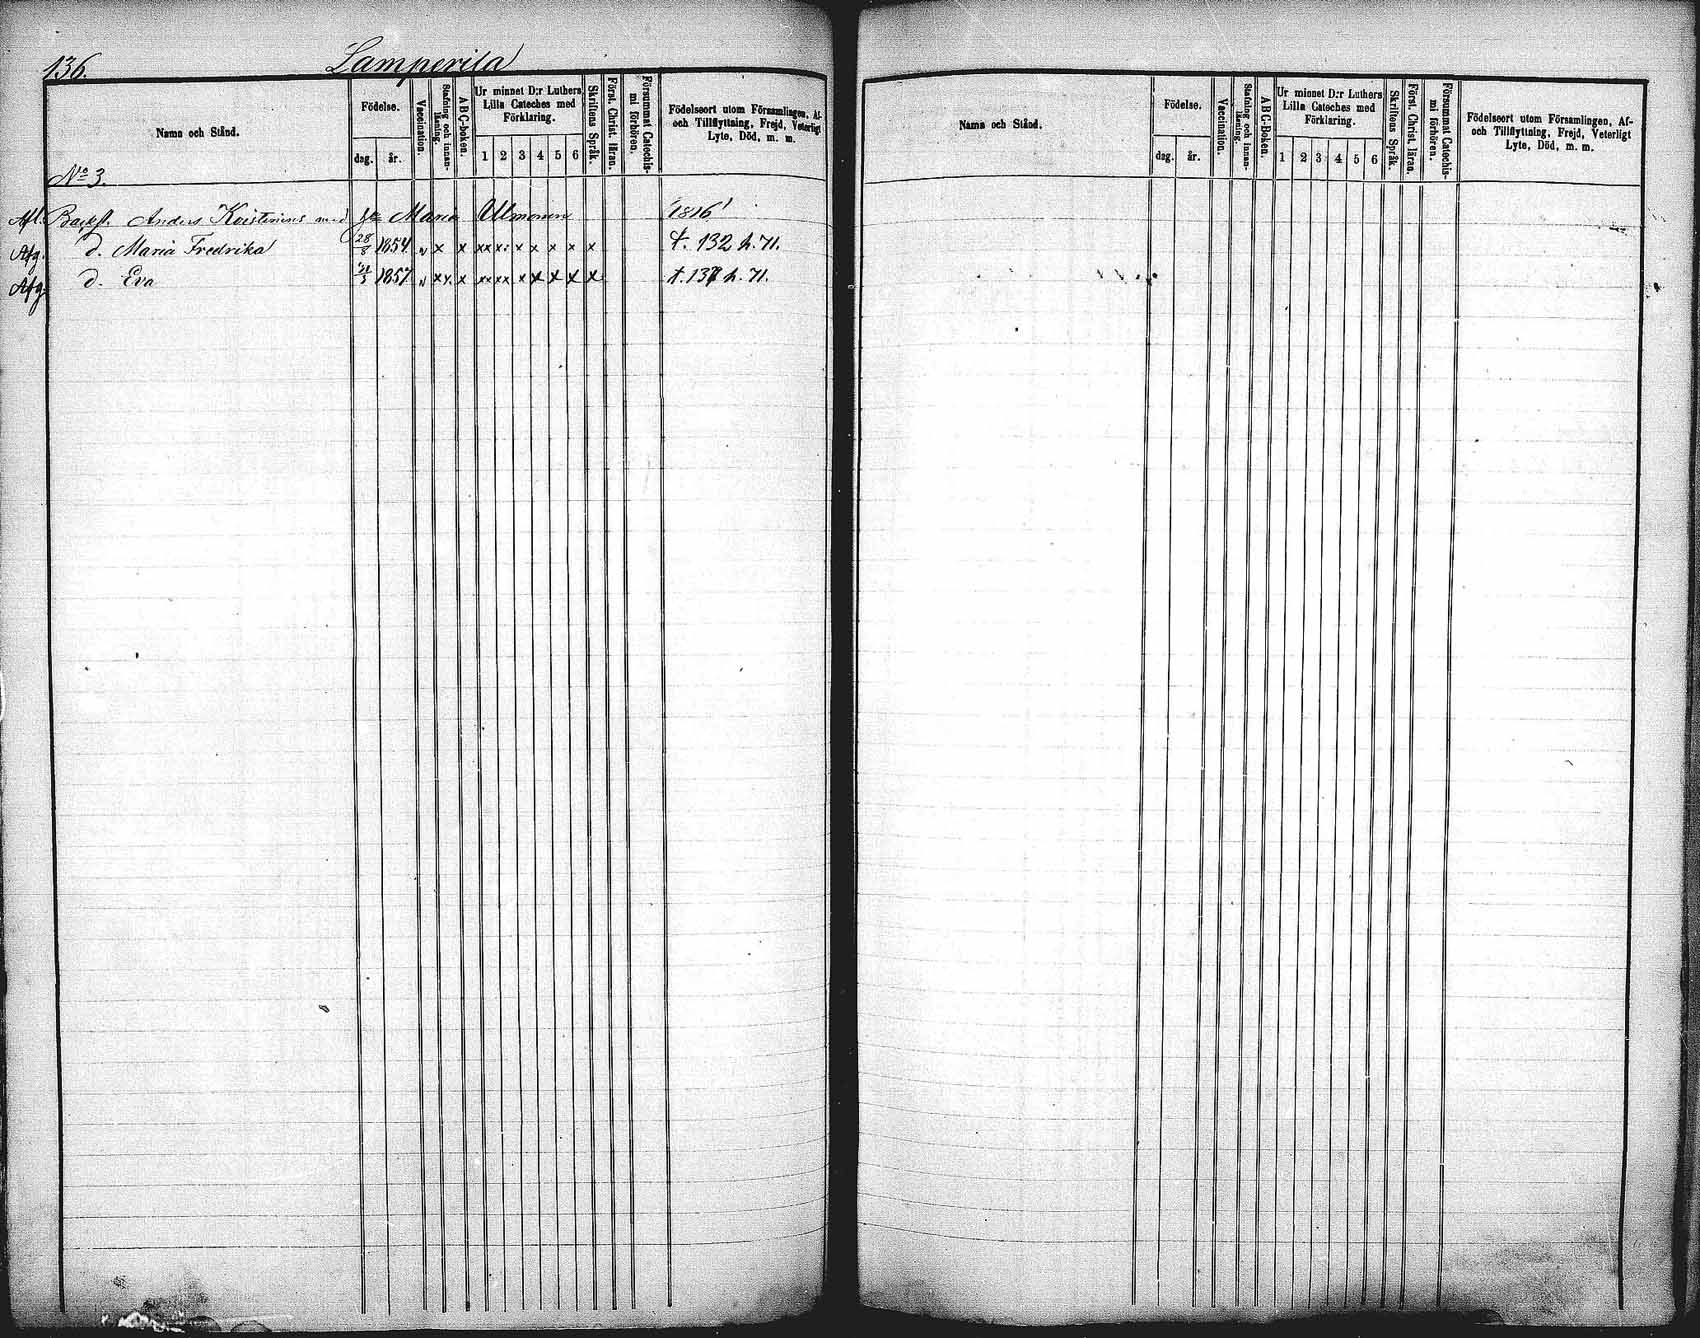 136. Lamperila
Namn och Stånd.
Födelse.
dag. år.
Vaccination.
Stafning och innanläsning.
A B C-boken.
Ur minnet D:r Luthers Lilla Cateches med Förklaring.
1 2 3 4 5 6
Skriftens Språk.
Först. Christ. läran.
Försummat Catechismi förhören.
Födelseort utom Församlingen, Af- och Tillflyttning, Frejd, Veterligt Lyte, Död, m. m.
No 3.
Afl. Anders med Maria 1816
Afg. d. Maria Fredrika 28/8 1854 v x x x x x : x x x x x 132 h. 71.
Afg. d. Eva 1857 v x x. x x x x x x x x x x h. 71.
Namn och Stånd.
Födelse.
dag. år.
Vaccination.
Stafning och innanläsning.
A B C-Boken.
Ur minnet D:r Luthers Lilla Cateches med Förklaring.
1 2 3 4 5 6
Skriftens Språk.
Först. Christ. läran.
Försummat Catechismi förhören.
Födelseort utom Församlingen, Af- och Tillflyttning, Frejd, Veterligt Lyte, Död, m. m.